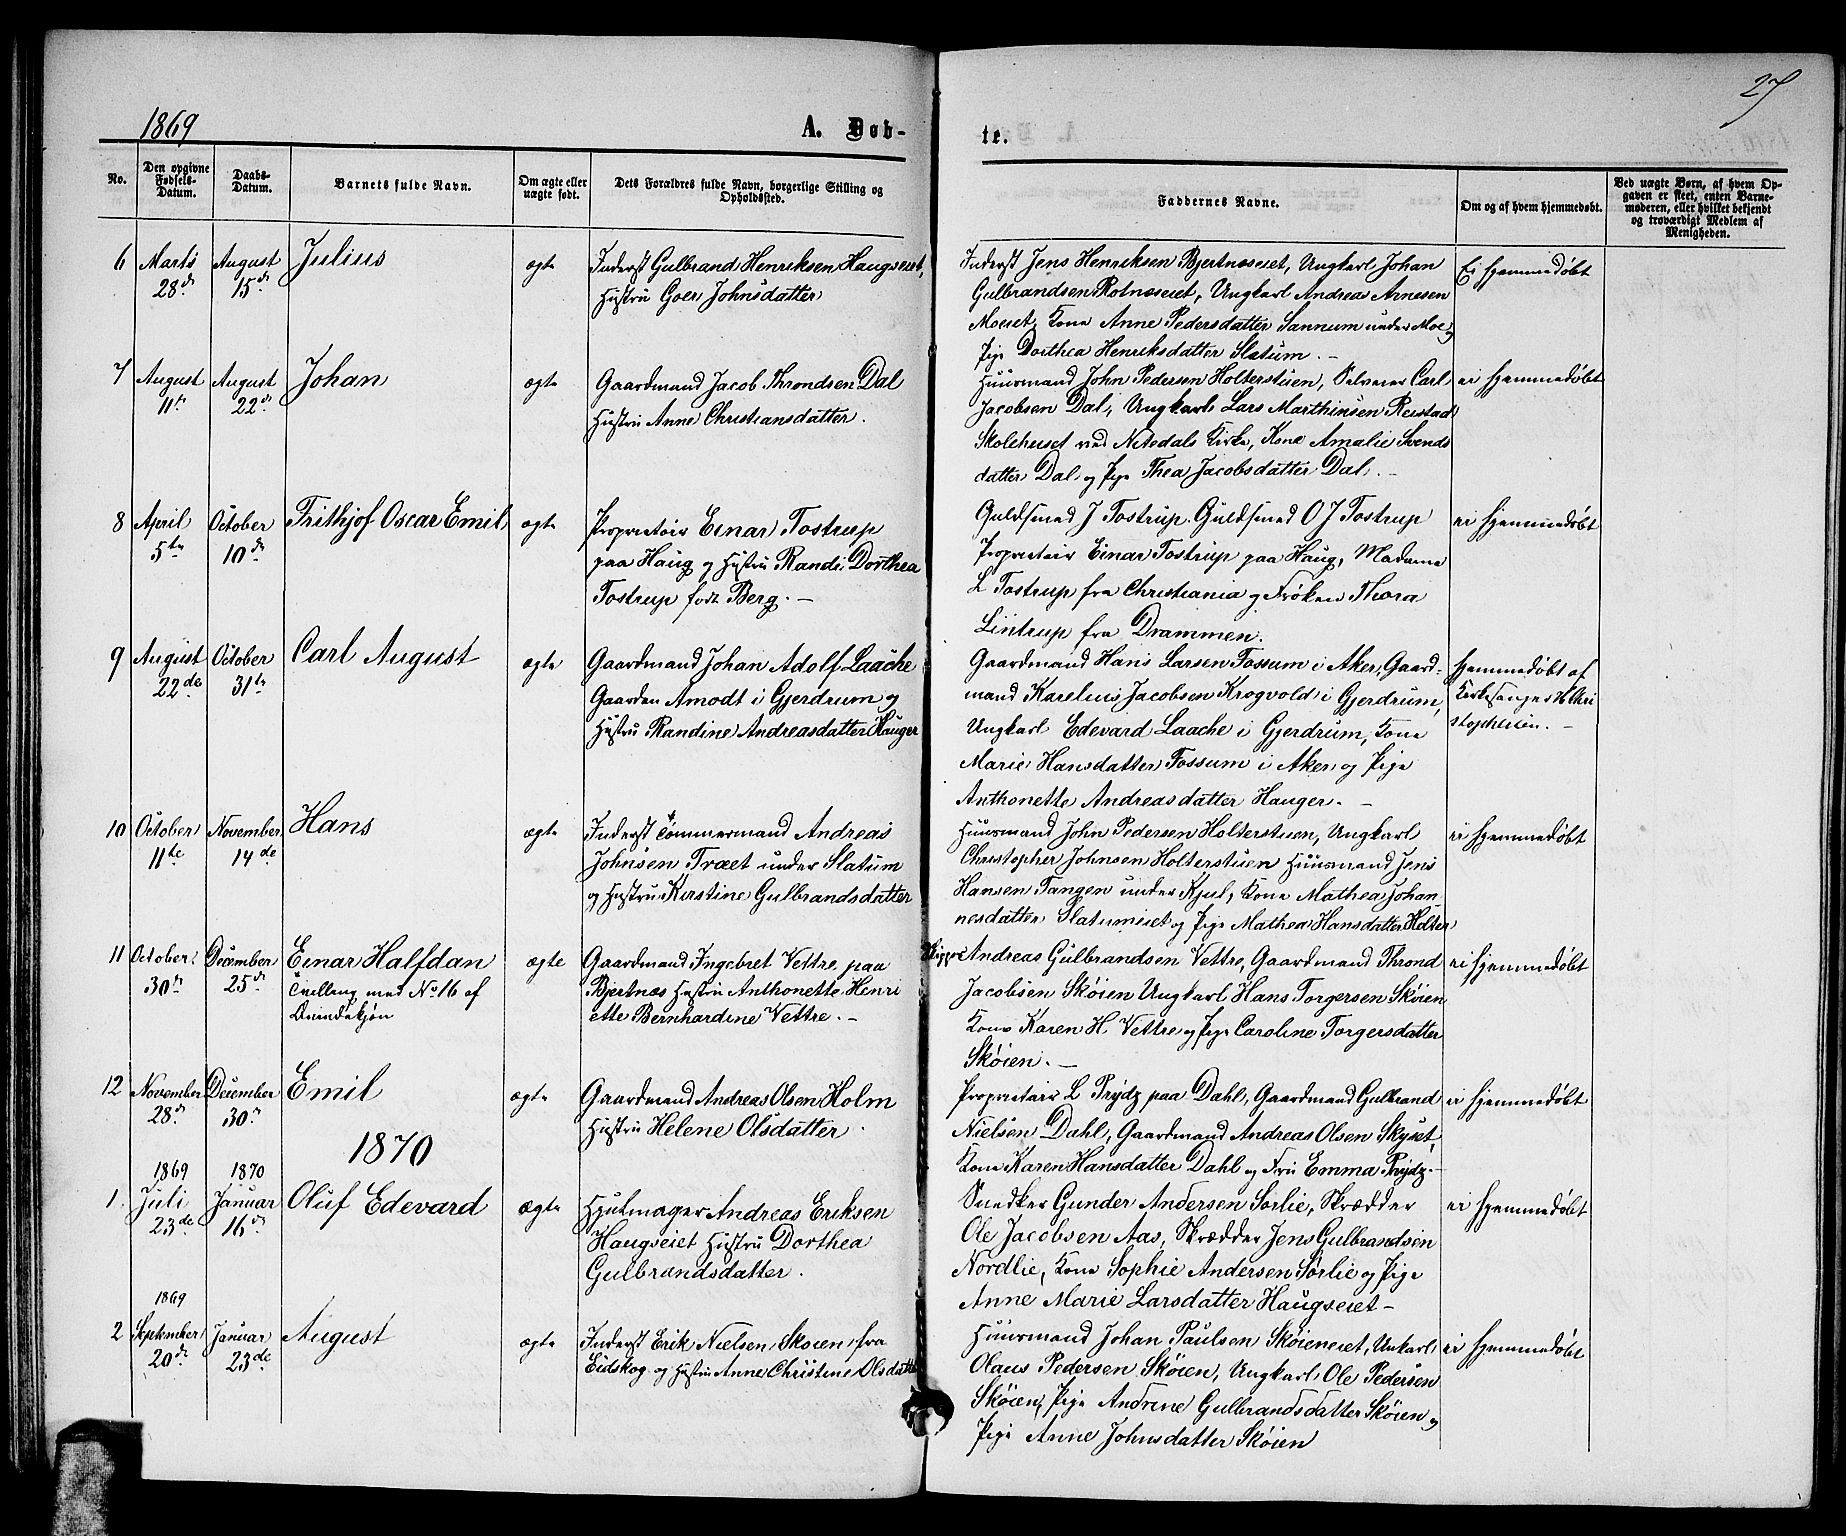 27
1869
A. Døb-
te.
No.
Den opgivne
Fødsels-
Datum.
Daabs-
Datum.
Barnets fulde Navn.
Om ægte eller
uægte født.
Dets Forældres fulde Navn, borgerlige Stilling og
Opholdssted.
Faddernes Navne.
Om og af hvem hjemmedøbt.
Ved uægte Børn, af hvem Op-
gaven er skeet, enten Barne-
moderen, eller hvilket bekjendt
og troværdigt Medlem af
Menigheden.
6
Marts
28de
August
15de
Julius
ægte
Inderst Gulbrand Henriksen Haugseiet,
Hustru Goer Johnsdatter
Inderst Jens Henriksen Bjertneseiet, Ungkarl Johan
Gulbrandsen Rotneseiet, Ungkarl Andreas Arnesen
Moeiet, Kone Anne Pedersdatter Sannum under Moe og
Pige Dorthea Henriksdatter Slatum. —
Ei hjemmedøbt
7
August
11te
August
22de
Johan
ægte
Gaardmand Jacob Throndsen Dal
Hustru Anne Christiansdatter.
Huusmand John Pedersen Holterstuen, Selveier Carl
Jacobsen Dal, Ungkarl Lars Marthinsen Reistad
Skolehuset ved Nitedals Kirke, Kone Amalie Svends
datter Dal og Pige Thea Jacobsdatter Dal. —
ei hjemmedøbt
8
April
5te
October
10de
Frithjof Oscar Emil
ægte
Proprietair Einar Tostrup
paa Haug og Hustru Randi Dorthea
Tostrup født Berg. —
Guldsmed J Tostrup. Guldsmed O J Tostrup
Proprietair Einar Tostrup paa Haug, Madame
L Tostrup fra Christiania og Frøken Thora
Lintrup fra Drammen.
ei hjemmedøbt
9
August
22de
October
31te
Carl August
ægte
Gaardmand Johan Adolf Laache
Gaarden Amodt i Gjerdrum og
Hustru Randine Andreasdatter Hauger
Gaardmand Hans Larsen Fossum i Aker, Gaard-
mand Karelius Jacobsen Krogvold i Gjerdrum,
Ungkarl Edevard Laache i Gjerdrum, Kone
Marie Hansdatter Fossum i Aker og Pige
Anthonette Andreasdatter Hauger. —
hjemmedøbt af
Kirkesanger H Chri
stophersen. —
10
October
11te
November
14de
Hans
ægte
Inderst Tømmermand Andreas
Johnsen Træet under Slatum
og Hustru Kirstine Gulbrandsdatter
Huusmand John Pedersen Holterstuen, Ungkarl
Christopher Johnsen Holterstuen Huusmand Jens
Hansen Tangen under Kjul, Kone Mathea Johan-
nesdatter Slatumeiet og Pige Mathea Hansdatter Holter
ei hjemmedøbt
11
October
30te
December
25de
Einar Halfdan
Tvilling med No 16 af
Qvindekjøn
ægte
Gaardmand Ingebret Vettre paa
Bjertnæs Hustru Anthonette Henri
ette Bernhardine Vettre. —
Skipper Andreas Gulbrandsen Vettre, Gaardmand Thrond
Jacobsen Skøien Ungkarl Hans Torgersen Skøien
Kone Karen H. Vettre og Pige Caroline Torgersdatter
Skøien. —
ei hjemmedøbt
12
November
28de
December
30te
Emil
ægte
Gaardmand Andreas Olsen Holm
Hustru Helene Olsdatter.
Proprietair L Prydz paa Dahl, Gaardmand Gulbrand
Nielsen Dahl, Gaardmand Andreas Olsen Skyset,
Kone Karen Hansdatter Dahl og Fru Emma Prydz. —
ei hjemmedøbt
1870
1
1869
Juli
23de
1870
Januar
16de
Oluf Edevard
ægte
Hjulmager Andreas Eriksen
Haugseiet Hustru Dorthea
Gulbrandsdatter.
Snedker Gunder Andersen Sørlie, Skrædder
Ole Jacobsen Aas, Skrædder Jens Gulbrandsen
Nordlie, Kone Sophie Andersen Sørlie og Pige
Anne Marie Larsdatter Haugseiet —
ei hjemmedøbt
2
1869
September
20de
Januar
23de
August
ægte
Inderst Erik Nielsen Skøien fra
Eidskog og Hustru Anne Christine Olsdatter
Huusmand Johan Paulsen Skøieneiet, Ungkarl
Olaus Pedersen Skøien, Ungkarl Ole Pedersen
Skøien, Pige Andrine Gulbrandsdatter Skøien og
Pige Anne Johnsdatter Skøien
ei hjemmedøbt